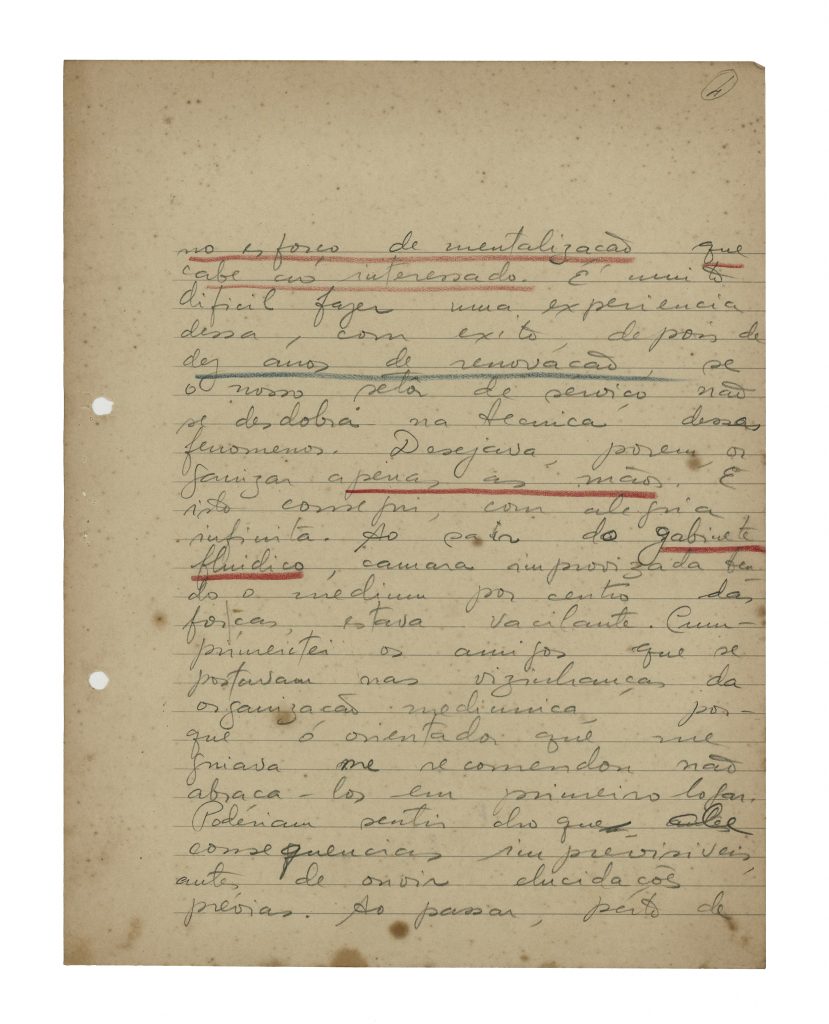 4
no esforço de mentalização que
cabe ao interessado. É muito
dificil fazer uma experiencia
dessa, com exito, depois de
dez anos de renovação, se
o nosso setôr de serviço não
se desdobra na tecnica dessas
fenomenos. Desejava, porem, or
ganizar apenas as mãos. E
isto consegui, com alegria
infinita. Ao sair do gabinete
fluidico, câmara improvizada ten
do o medium por centro das
forças, estava vacilante. Cum-
primentei os amigos que se
postavam nas vizinhanças da
organização mediunica, por-
que o orientador que me
guiava me recomendou não
abraça-los em primeiro logar.
Poderiam sentir choque
consequencias imprevisiveis,
antes de ouvir elucidações
prévias. Ao passar, perto de